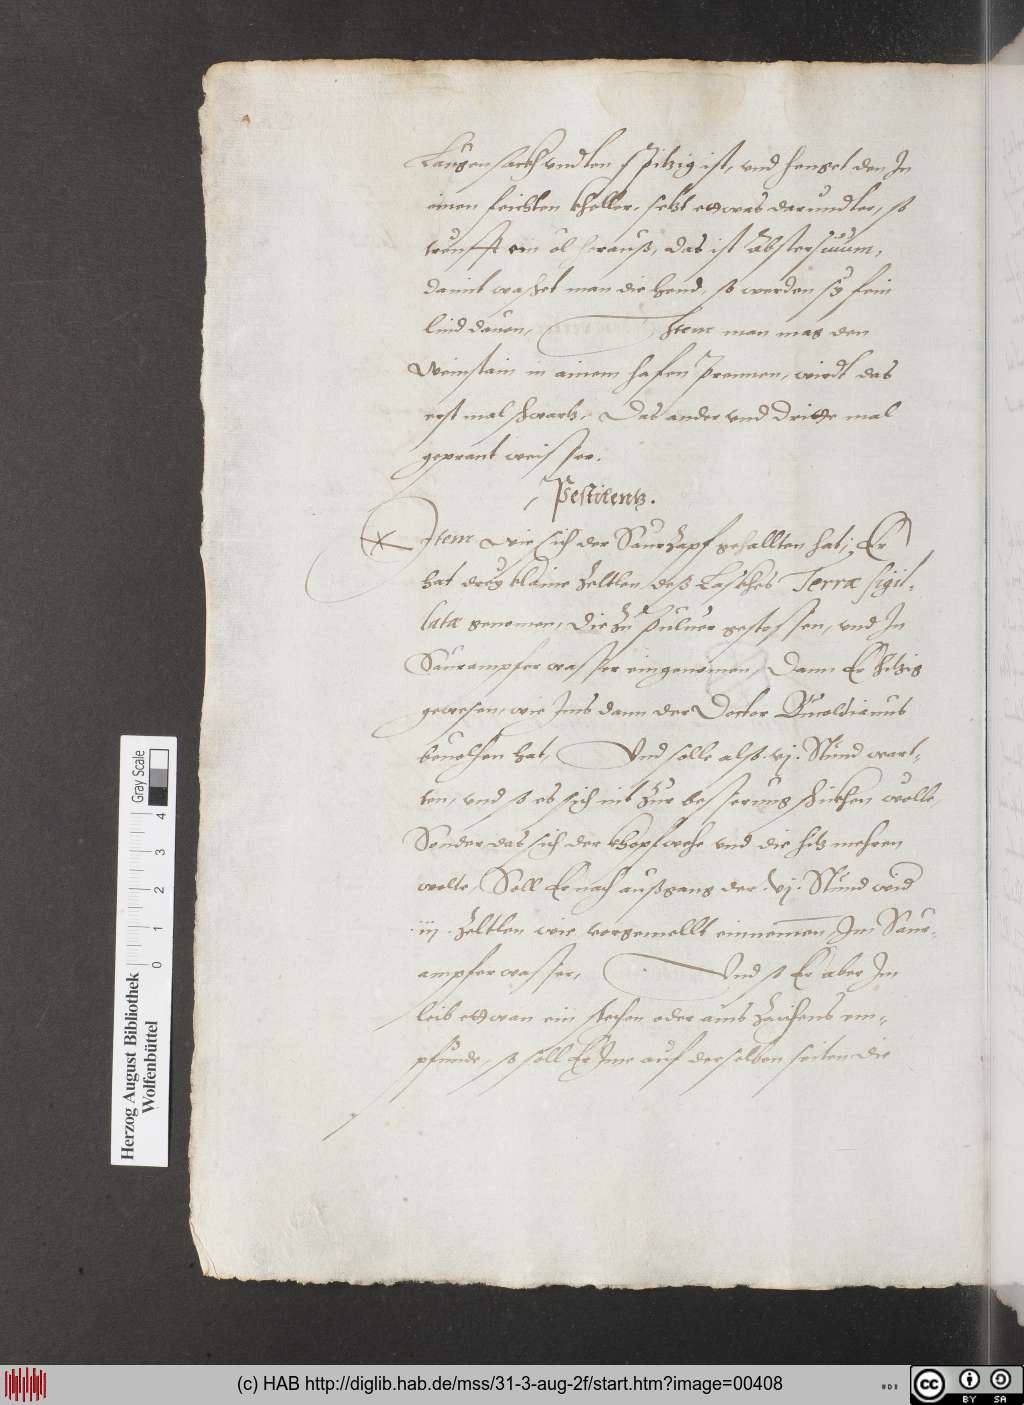 Laugensackh undten spitzig ist, und henget den In
einen feichten kheller, setzt etwas darundter, so
treufft ein öl herauß, das ist Abstersiuum,
damit waschet man die hend, so werden sy fein
lind dauon, Item man mag den
Weinstain in ainem hafen prennen, wirdt das
erst mal schwartz, Das ander und dritte mal
geprant weisser.
Pestilentz.
Item wie sich der Saurzapf gehallten hat, Er
hat drey klaine Zeltlen deß Terræ Sigil-
latæ genomen, die zu Puluer gestossen, und In
Saurampfer wasser eingenomen, Dann Er hitzig
gewesen, wie Ims dann der Doctor
beuolhen hat, Und solle also .vj. Stund wart-
ten, und so es sich nit zur besserung schickhen wolle,
Sonder das sich der khopfwehe und die hitz mehren
wolte, Soll Er nach außgang der .vj. Stund wid
.iij. Zeltlen wie vorgemellt einnemen, Im Saur-
ampfer wasser, Und so Er aber Im
leib etwan ein stechen oder ains Zaichens em-
pfunde, so soll Er Ime auf derselben seiten die
Herzog August Bibliothek
Wolfenbüttel
Gray Scale
0 1 2 3 4
(c) HAB http://diglib.hab.de/mss/31-3-aug-2f/start.htm?image=00408
cc BY SA